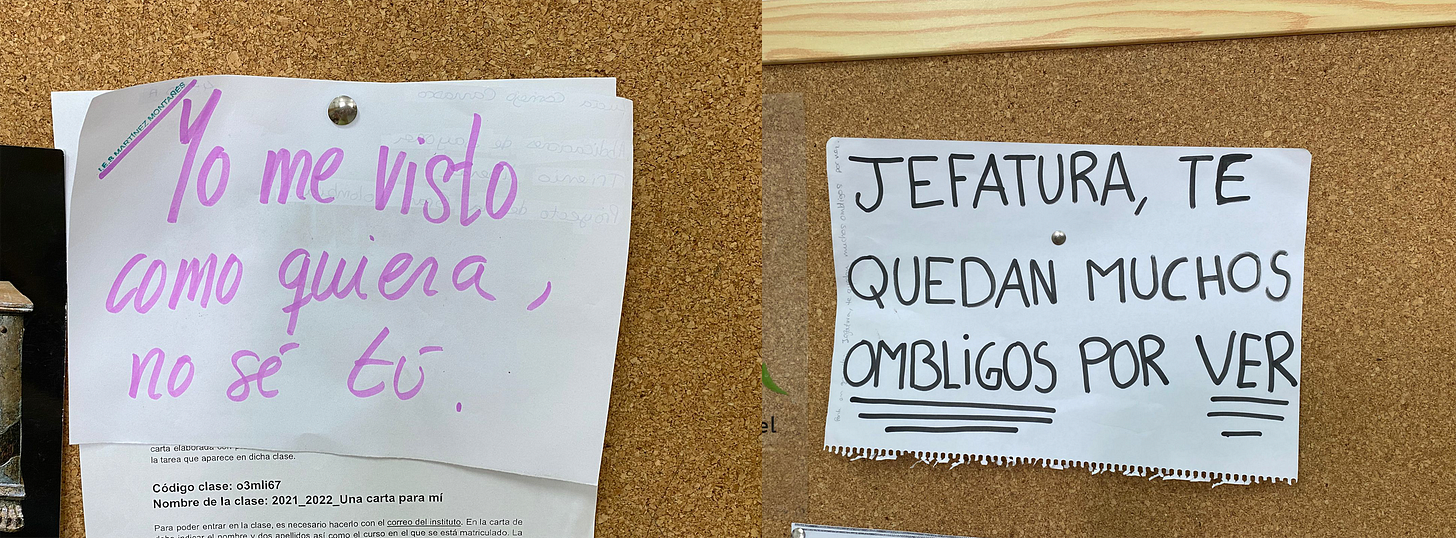 I.E.S MARTÍNEZ MONTAÑÉS
Yo me visto
como quiera,
no sé tú.
carta elaborada
la tarea que aparece en dicha clase.
Código clase: o3mli67
Nombre de la clase: 2021_2022_Una carta para mí
Para poder entrar en la clase, es necesario hacerlo con el correo del instituto. En la carta de
debe indicar el nombre y dos apellidos así como el curso en el que se está matriculado. La
JEFATURA, TE
QUEDAN MUCHOS
OMBLiGOS POR VER
el